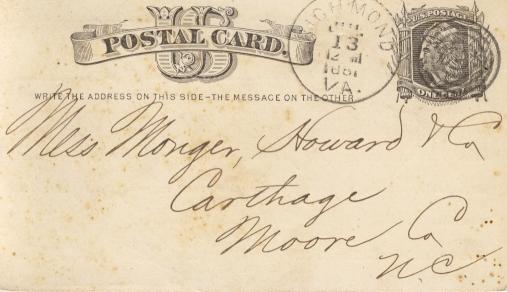 US
POSTAL CARD.
WRITE THE ADDRESS ON THIS SIDE-THE MESSAGE ON THE OTHER
RICHMOND
JUL
13
12 M
1881
VA.
U.S. POSTAGE
ONE CENT
Mess Monger, Howard & Co
Carthage
Moore Co
N.C.